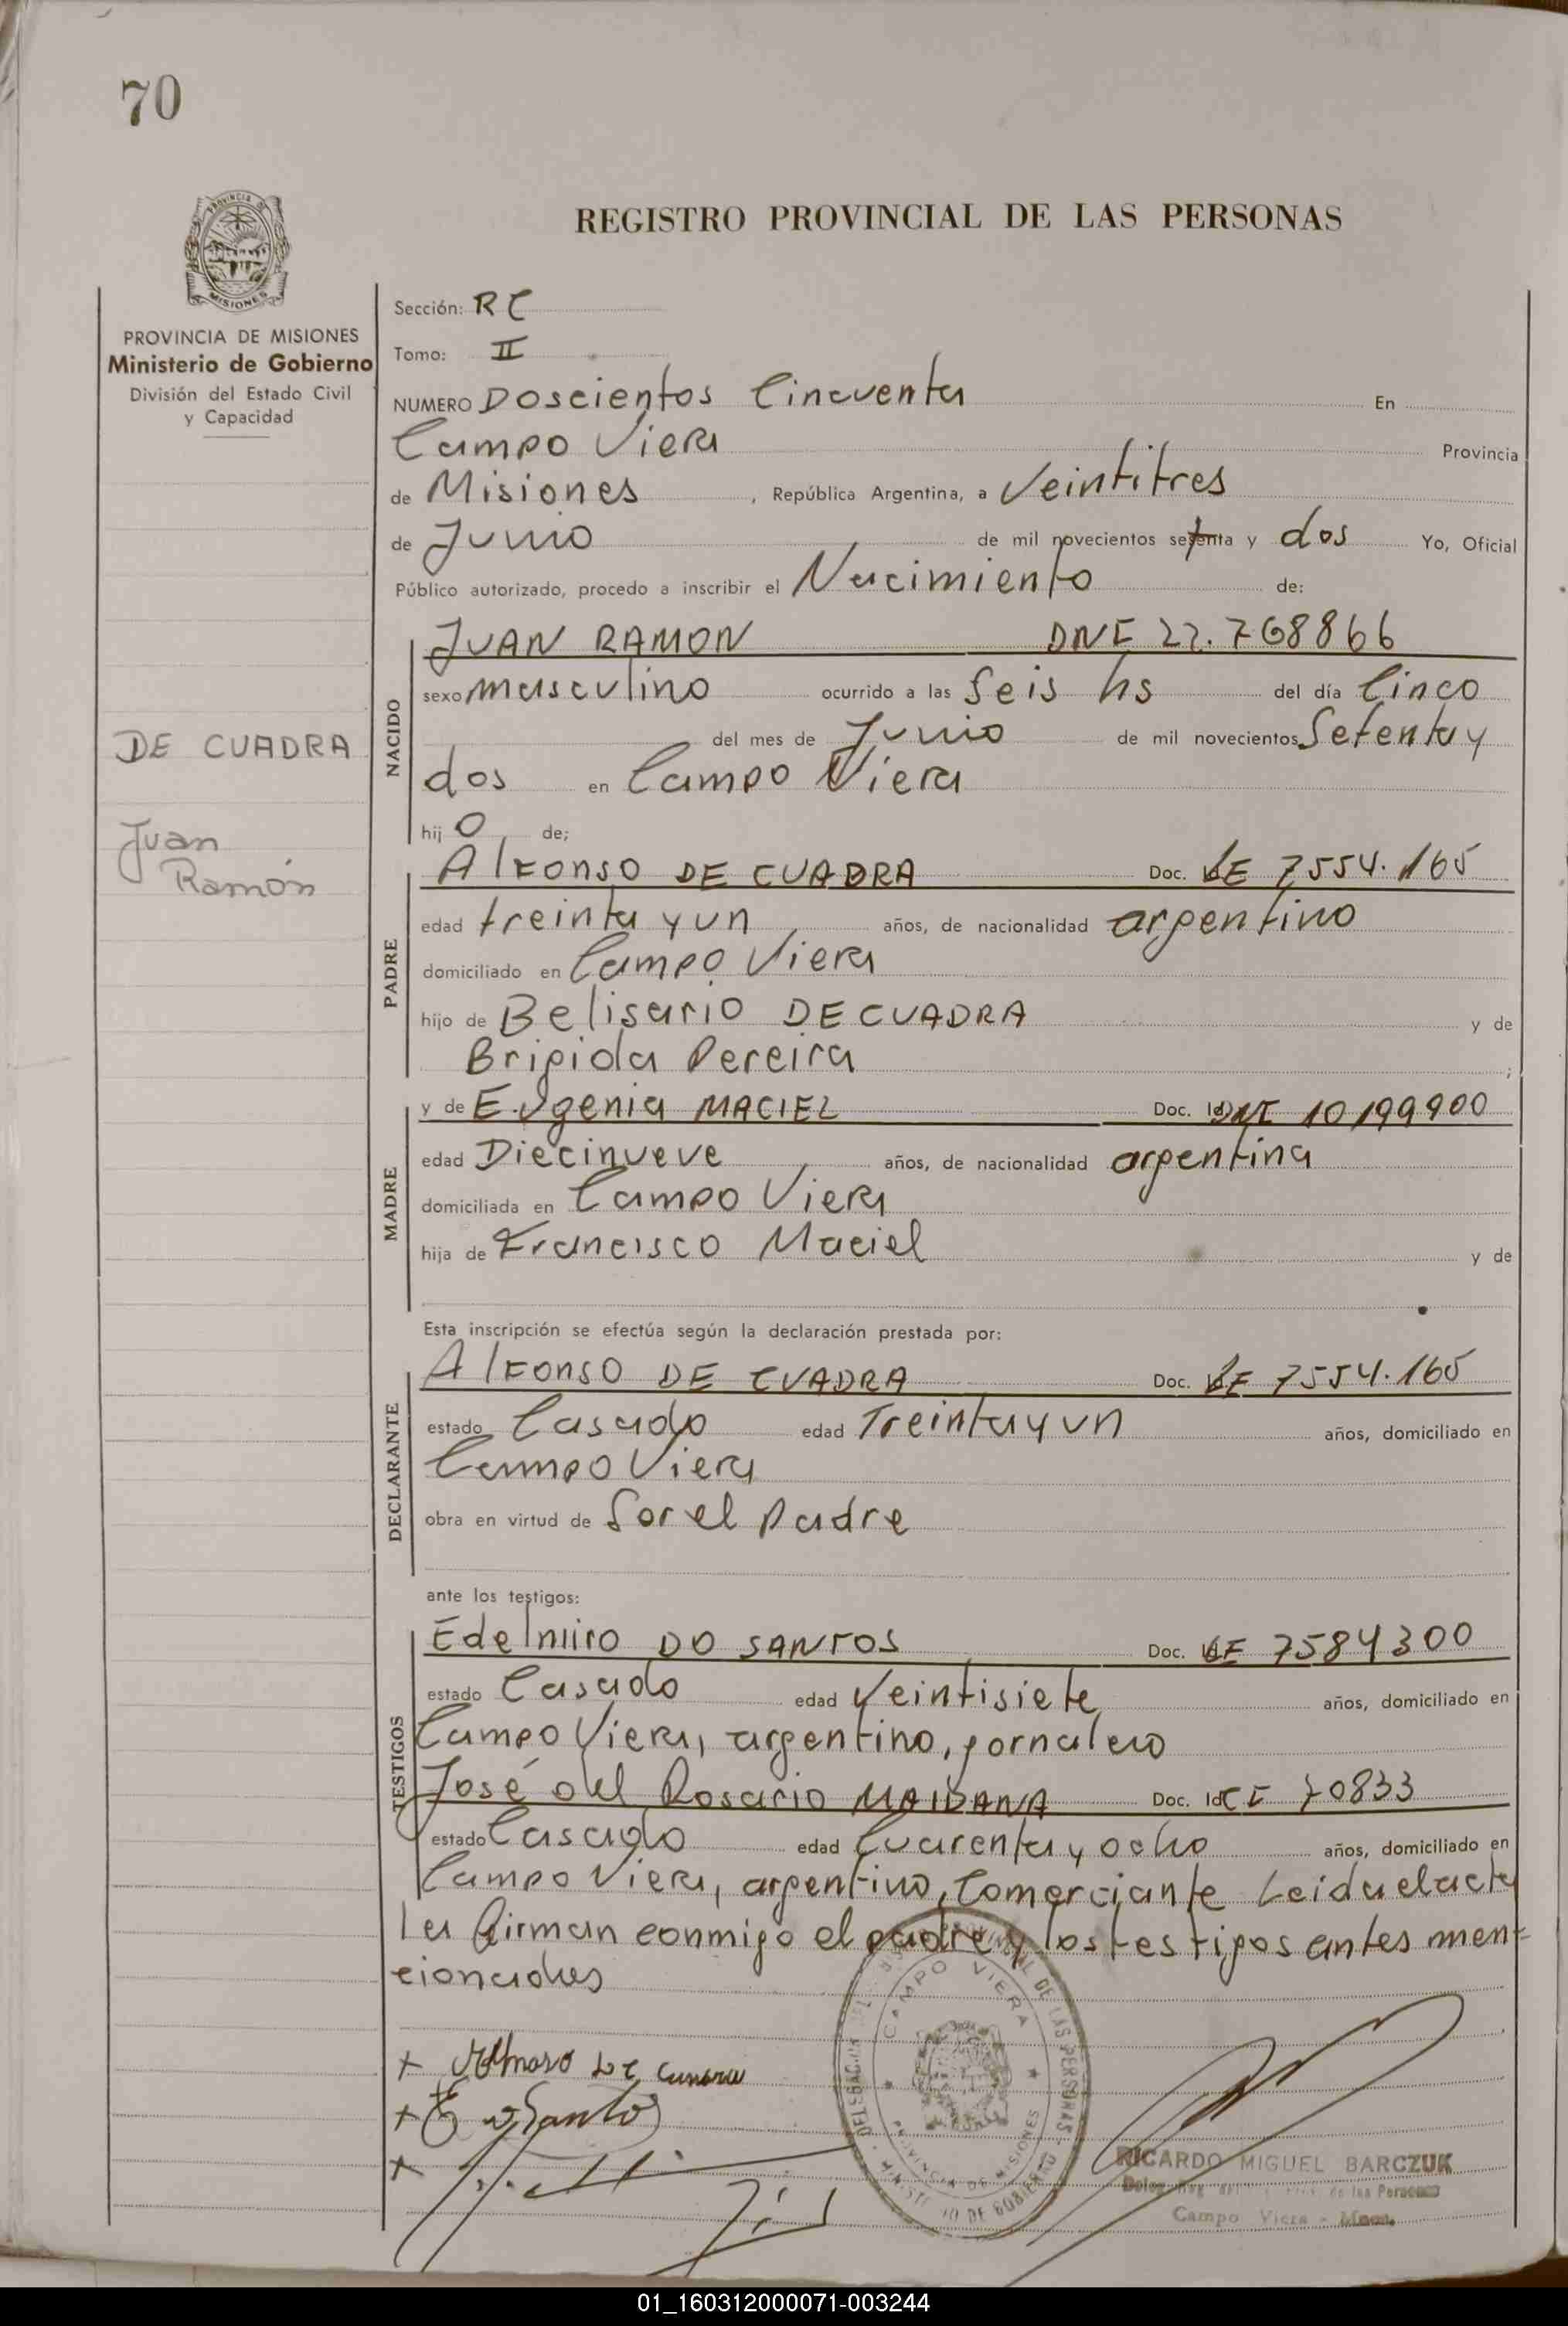 70
REGISTRO PROVINCIAL DE LAS PERSONAS
PROVINCIA DE MISIONES
Ministerio de Gobierno
División del Estado Civil
y Capacidad
DE CUADRA
Juan
Ramón
Sección: RC
Tomo: II
NUMERO Doscientos Cincuenta En
Campo Viera Provincia
de Misiones , República Argentina, a Veintitres
de Junio de mil novecientos setenta y dos Yo, Oficial
Público autorizado, procedo a inscribir el Nacimiento de:
NACIDO
JUAN RAMON DNI 22.768866
sexo masculino ocurrido a las Seis hs del día Cinco
del mes de Junio de mil novecientos Setenta y
dos en Campo Viera
hij o de;
PADRE
Alfonso DE CUADRA Doc. LE 7554.165
edad treinta y un años, de nacionalidad argentino
domiciliado en Campo Viera
hijo de Belisario DE CUADRA y de
Brigida Pereira ;
MADRE
y de Eugenia MACIEL Doc. Id DNI 10199900
edad Diecinueve años, de nacionalidad argentina
domiciliada en Campo Viera
hija de Francisco Maciel y de
Esta inscripción se efectúa según la declaración prestada por:
DECLARANTE
Alfonso DE CUADRA Doc. LE 7554.165
estado Casado edad Treinta y un años, domiciliado en
Campo Viera
obra en virtud de Ser el Padre
ante los testigos:
TESTIGOS
Edelmiro DO SANTOS Doc. LE 7584300
estado Casado edad Veintisiete años, domiciliado en
Campo Viera, argentino, jornalero
José del Rosario MAIDANA Doc. Id CI 70833
estado Casado edad Cuarenta y ocho años, domiciliado en
Campo Viera, argentino, Comerciante Leida el acta
la firman conmigo el padre y los testigos antes men-
cionados
CAMPO VIERA
PROVINCIA DE MISIONES
MINISTERIO DE GOBIERNO
RICARDO MIGUEL BARCZUK
de las Personas
Campo Viera - Mnes.
01_160312000071-003244